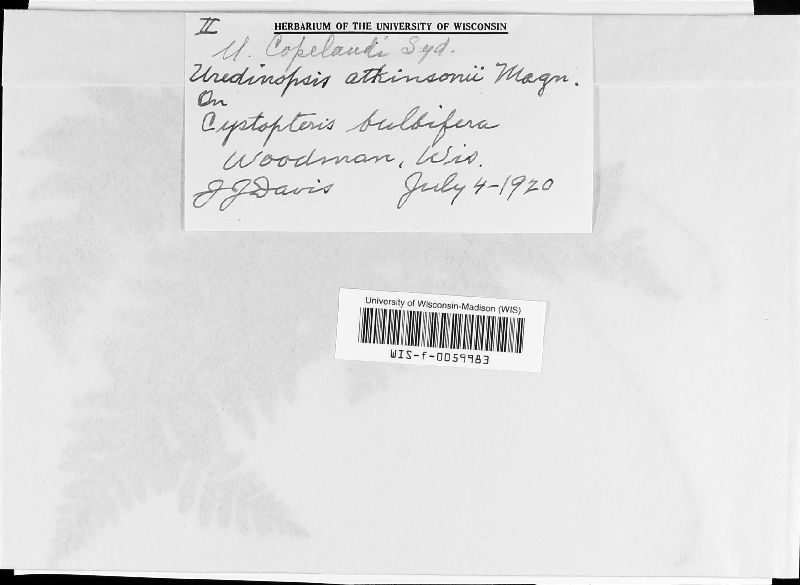 II
HERBARIUM OF THE UNIVERSITY OF WISCONSIN
U. Copelandi Syd.
Uredinopsis atkinsonii Magn.
On
Cystopteris bulbifera
Woodman, Wis.
J J Davis July 4-1920
University of Wisconsin-Madison (WIS)
WIS-f-0059983